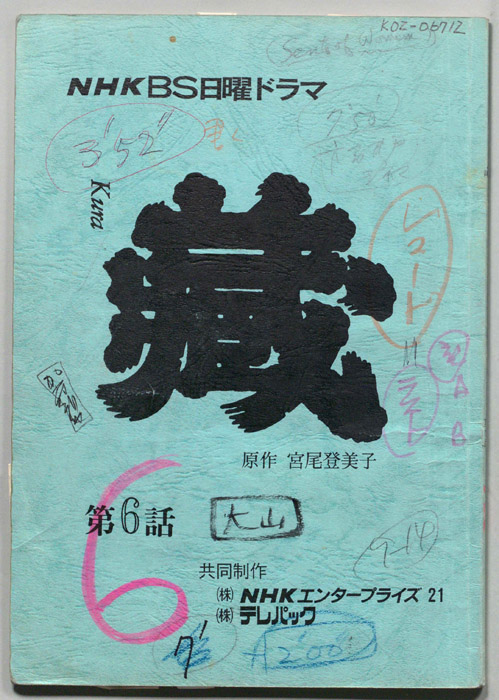 KOZ-06712
(Scent of Woman)
NHK BS日曜ドラマ
3'52"
7'52
Kura
藏
レコード
原作 宮尾登美子
第6話
6
大山
7-14
共同制作
(株) NHKエンタープライズ 21
(株) テレパック
7'
2'00"